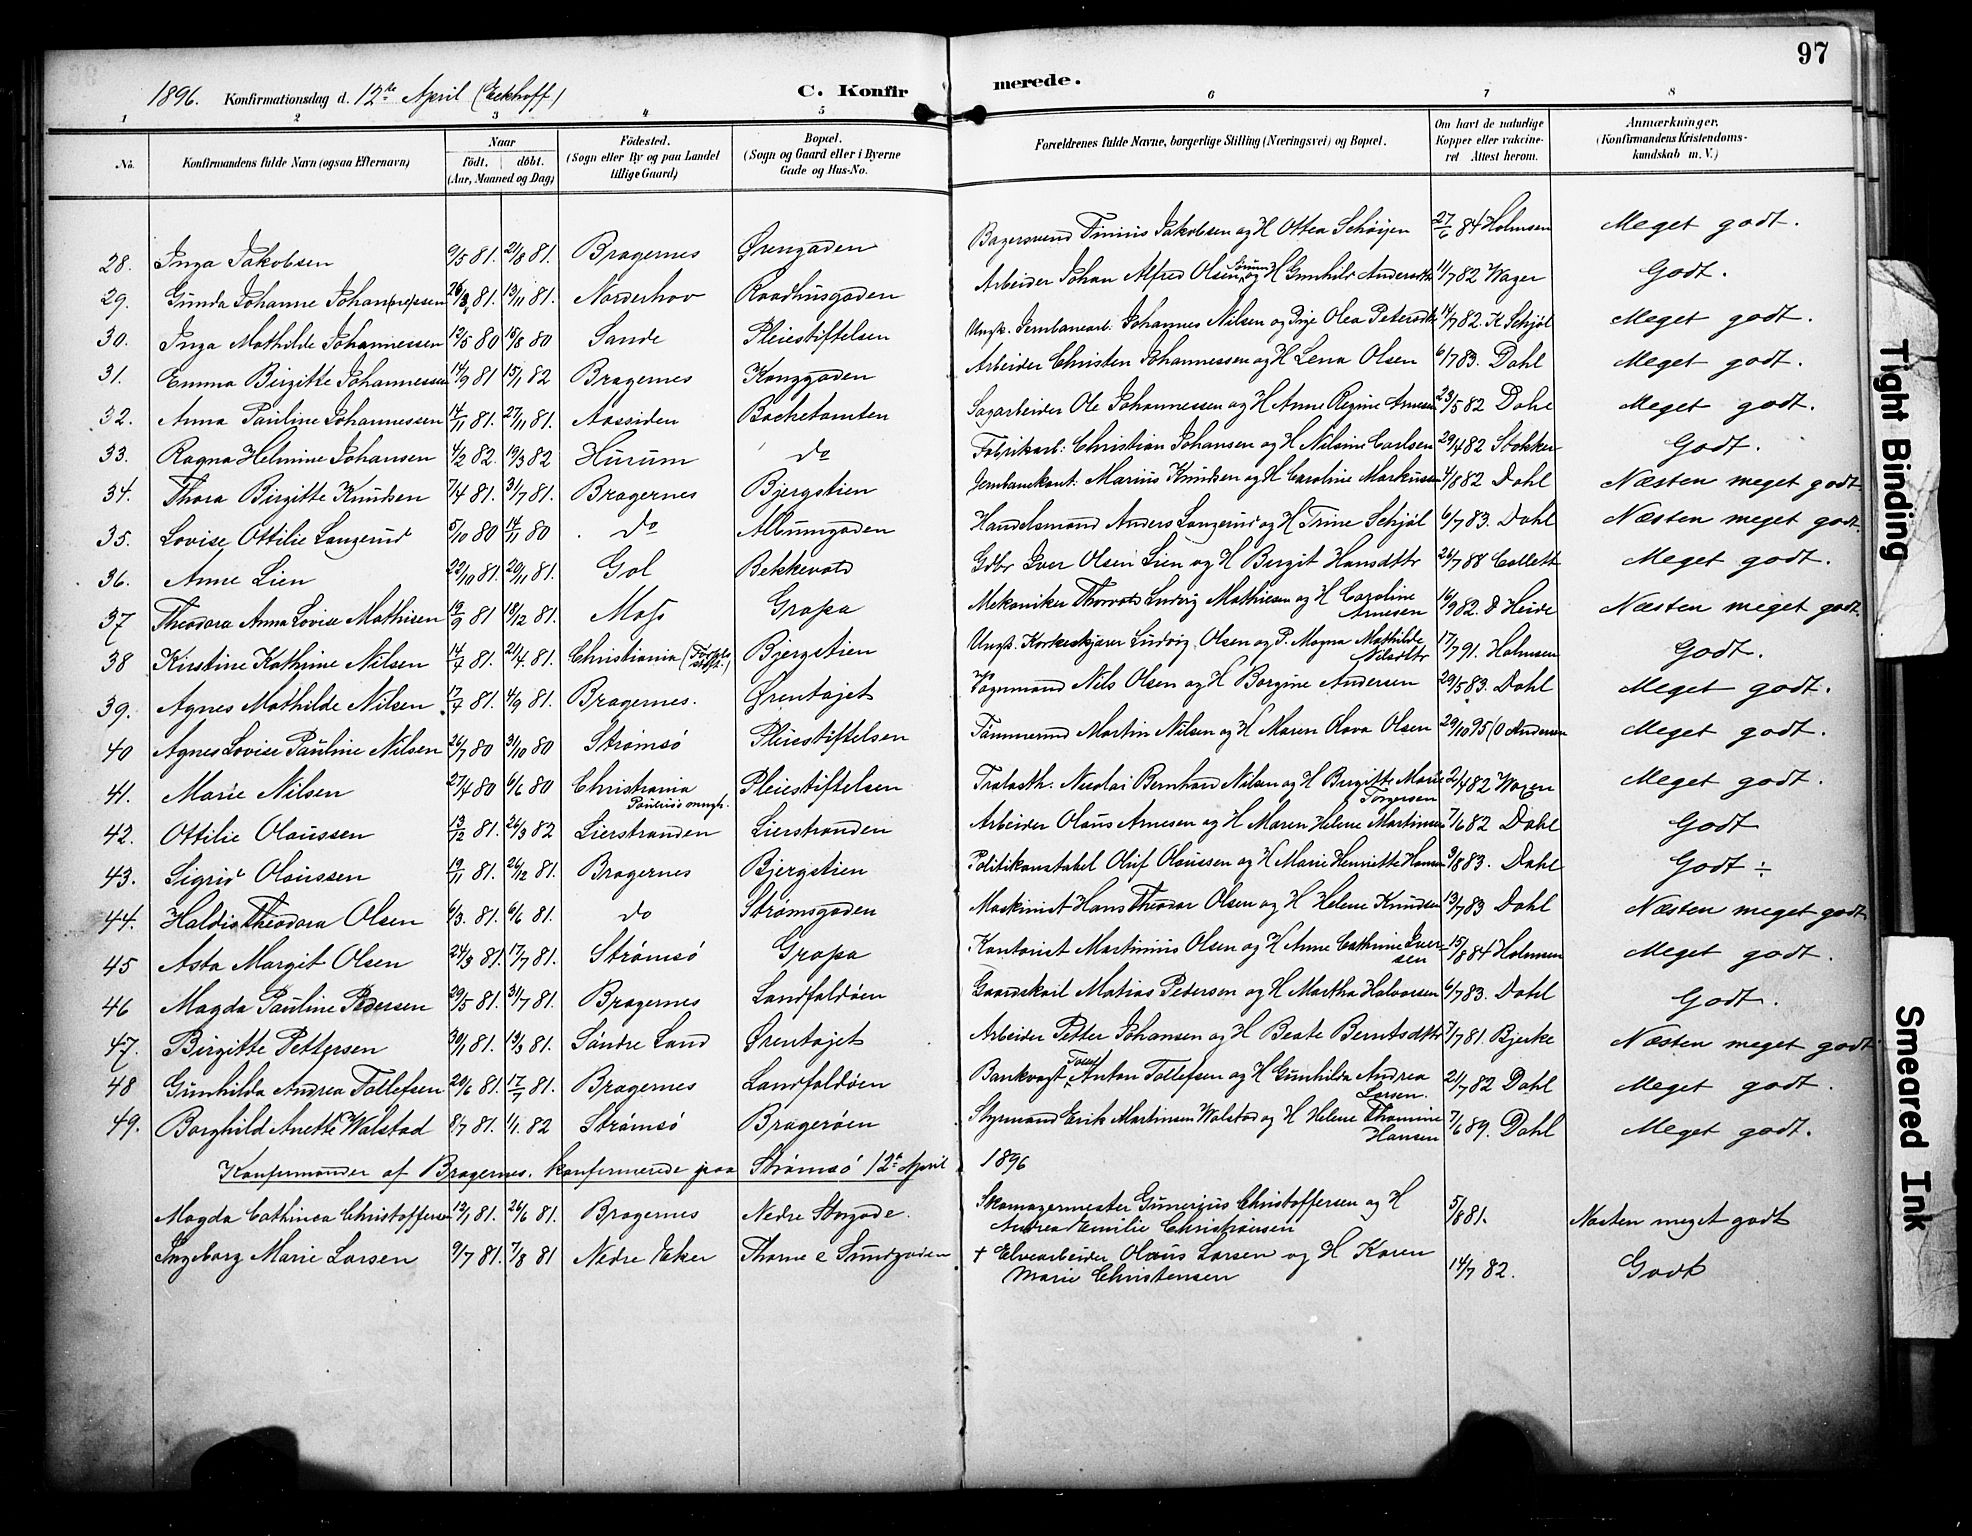 97
1896. Konfirmationsdag d. 12te April (Eckhoff) C. Konfirmerede.
1 2 3 4 5 6 7 8
No. Konfirmandens fulde Navn (ogsaa Efternavn) Naar født. døbt. (Aar, Maaned og Dag) Fødested. (Sogn eller By og paa Landet tillige Gaard) Bopæl. (Sogn og Gaard eller i Byerne Gade og Hus-No. Forældrenes fulde Navne, borgerlige Stilling (Næringsvei) og Bopæl. Om havt de naturlige Kopper eller vakcineret Attest herom. Anmærkninger. (Konfirmandens Kristendomskundskab m. V.)
28. Inga Jakobsen 9/5 81. 21/8 81. Bragernes Ørengaden Bagersvend Tinius Jakobsen og H Ottea Schøyen 27/6 84 Holmsen Meget godt.
29. Gunda Johanne Johan(ne)ssen 26/3 81. 13/11 81. Norderhov Raadhusgaden Arbeider Johan Alfred Olsen og H Gunhild Andersdtr 11/7 82 Wager Godt.
30. Inga Mathilde Johannessen 12/5 80 15/8 80 Sande Pleiestiftelsen Ungk. Jernbanearb. Johannes Nilsen og Pige Olea Petersdtr 14/7 82. K Schjøl Meget godt.
31. Emma Birgitte Johannessen 14/9 81 15/1 82 Bragernes Konggaden Arbeider Christen Johannessen og H Lena Olsen 6/7 83. Dahl Meget godt.
32. Anna Pauline Johannessen 14/11 81. 27/11 81. Aassiden Bachetomten Sagarbeider Ole Johannessen og H Anne Regine Arnesen 23/5 82 Dahl Meget godt.
33. Ragna Helmine Johansen 4/2 82. 19/3 82 Hurum do Fabrikarb. Christian Johansen og H Nilsine Carlsen 29/4 82 Stokker Godt.
34. Thora Birgitte Knudsen 7/4 81. 31/7 81. Bragernes Bjergstien Jernbanekont. Marius Knudsen og H Caroline Markussen 4/8 82 Dahl Næsten meget godt
35. Lovise Ottilie Langerud 5/10 80 14/11 80 do Albumgaden Handelsmand Anders Langerud og H Trine Schjøl 6/7 83. Dahl Næsten meget godt.
36. Anne Lien 22/10 81. 20/11 81. Gol Bekkevold Gdbr Iver Olsen Lien og H Birgit Hansdtr 26/7 88 Collett Meget godt.
37 Theodora Anna Lovise Mathisen 19/9 81 18/12 81. Moss Gropa Mekaniker Thorvald Ludvig Mathiesen og H Caroline Arnesen 16/9 82. D Heide Næsten meget godt.
38 Kirstine Kathrine Nilsen 14/7 81. 21/4 81. Christiania Bjergstien Ungk. Korkeskjærer Ludvig Olsen og P. Magna Mathilde Nilsdtr 17/7 91. Holmsen Godt.
39. Agnes Mathilde Nilsen. 17/7 81. 4/9 81. Bragernes. Ørentøjet Vognmand Nils Olsen og H Borgine Andersen 29/5 83. Dahl Meget godt.
40 Agnes Lovise Pauline Nilsen 26/7 80 31/10 80 Strømsø Pleiestiftelsen Tømmermd Martin Nilsen og H Maren Olava Olsen 29/10 95 (O Andersen Meget godt.
41. Marie Nilsen 27/4 80 6/6 80 Christiania Paulus mngh. Pleiestiftelsen Nicolai Bernhard Nilsen og H Birgitte Marie Torgersen 2/4 82 Wogen Meget godt.
42. Ottilie Olaussen 13/12 81. 26/3 82 Lierstranden Lierstranden Arbeider Olaus Arnesen og H Maren Helene Martinsen 7/6 82 Dahl Godt
43. Sigrid Olaussen 19/11 81. 26/12 81. Bragernes Bjergstien Politikonstabel Oluf Olaussen og H Marie Henriette Hansen 3/8 83. Dahl Godt ÷
44. Haldis Theodora Olsen 6/3. 81. 6/6 81. do Strømsgaden Maskinist Hans Theodor Olsen og H Helene Knudsen 13/7 83 Dahl Næsten meget godt
45 Asta Margit Olsen 24/3 81. 17/7 81. Strømsø Gropa Kontorist Martinius Olsen og H Anne Cathrine Iversen 15/8 84 Holmsen Meget godt.
46 Magda Pauline Pedersen 29/5 81. 31/7 81. Bragernes Landfaldøen Gaardskarl Matias Pedersen og H Martha Halvorsen 6/7 83. Dahl Godt.
47. Birgitte Pettersen 30/1 81. 13/3 81. Søndre Land Ørentøjet Arbeider Petter Johansen og H Beate Berntsdtr 7/7 81. Bjerke Næsten meget godt
48 Gunhilda Andrea Tollefsen 20/6 81. 17/7 81. Bragernes Landfaldøen Bankvagt Anton Tollefsen og H Gunhilda Andrea Larsen. 21/7 82 Dahl Meget godt.
49. Borghild Anette Walstad 8/7 81. 1/1. 82 Strømsø Bragerøen Styrmand Erik Martinsen Walstad og H Helene Thomine Hansen 7/6 89. Dahl Meget godt.
Konfirmander af Bragernes. konfirmerede paa Strømsø 12te April 1896
Magda Cathinca Christoffersen 12/1 81. 26/6 81. Bragernes Nedre Storgade. Skomagermester Gunerius Christoffersen og H Andrea Emilie Christiansen 5/8 81. Næsten meget godt
Ingeborg Marie Larsen 9/7 81. 7/8 81 Nedre Eker Thorne e Sundgaden † Elvearbeider Olaus Larsen og H Karen Marie Christensen 14/7 82. Godt
Tight Binding
Smeared Ink